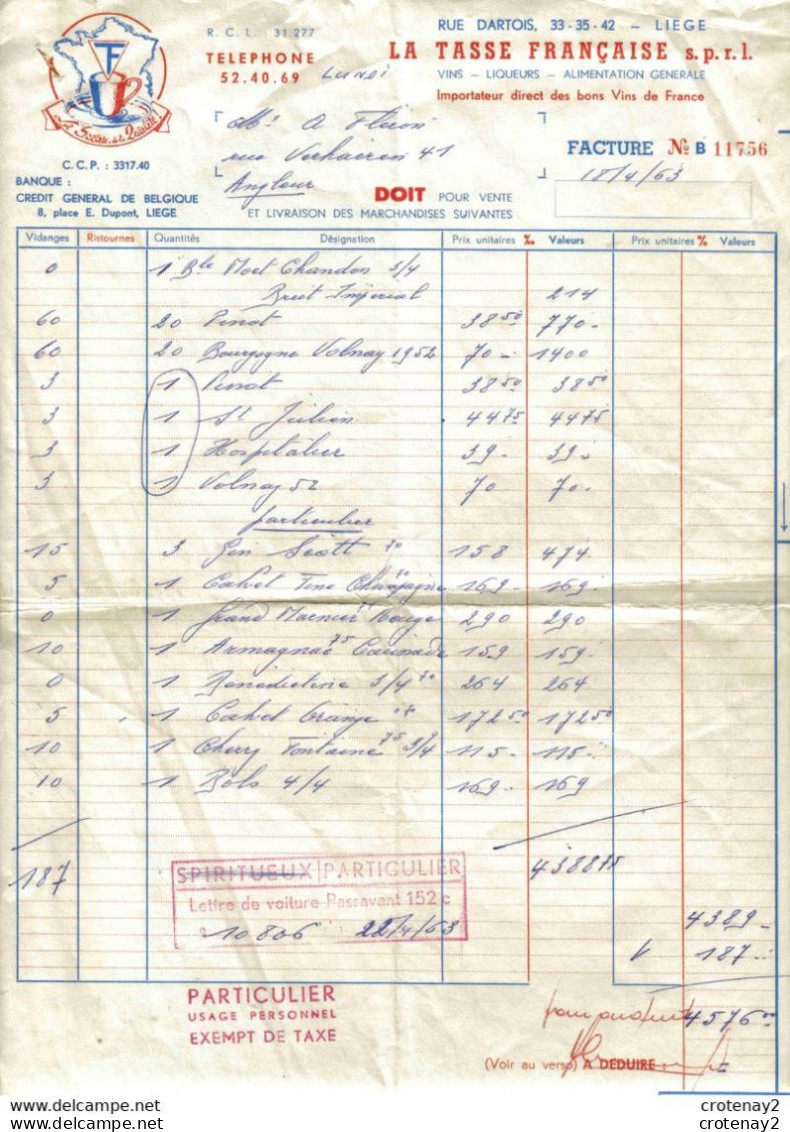 R. C. L. 31.277
RUE DARTOIS, 33-35-42 — LIEGE
TELEPHONE
52.40.69
Lundi
LA TASSE FRANÇAISE s.p.r.l.
VINS — LIQUEURS — ALIMENTATION GENERALE
Importateur direct des bons Vins de France
TF
C. C. P. : 3317.40
Mr A Fléron
rue Verhaeren 41
Angleur
FACTURE № B 11756
18/4/63
BANQUE :
CREDIT GENERAL DE BELGIQUE
8, place E. Dupont, LIEGE
DOIT POUR VENTE
ET LIVRAISON DES MARCHANDISES SUIVANTES
Vidanges Ristournes Quantités Désignation Prix unitaires ‰ Valeurs Prix unitaires % Valeurs
0 1 Ble Moet Chandon 3/4
Brut Impérial 214
60 20 Pinot 38 50 770-
60 20 Bourgogne Volnay 1952 70 - 1400
3 1 Pinot 38 50 38 50
3 1 St Julien 44 75 44 75
3 1 Hospitalier 39- 39-
3 1 Volnay 52 70 70-
particulier
15 3 Gin Scott 70 158 474
5 1 Champagne 169- 169-
0 1 Grand Marnier Rouge 290 290
10 1 Armagnac 75 159 159
0 1 Bénédictine 3/4 70 264 264
5 1 172 50 172 50
10 1 Cherry Fontaine 75 3/4 115- 115-
10 1 Bols 4/4 169- 169
187 4388 75
SPIRITUEUX PARTICULIER
Lettre de voiture Passavant 152 c
10806 22/4/63
4389-
V 187-
PARTICULIER
USAGE PERSONNEL
EXEMPT DE TAXE
pour acquit
4576 00
(Voir au verso) A DEDUIRE
crotenay2
crotenay2